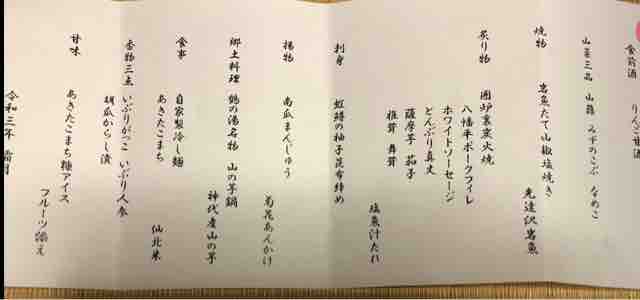 食前酒 りんご甘酒
山菜三品 山蕗 みずのこぶ なめこ
焼物 岩魚たて山椒塩焼き
先達沢岩魚
炙り物 囲炉裏炭火焼
八幡平ポークフィレ
ホワイトソーセージ
どんぶり真丈
薩摩芋 茄子
椎茸 舞茸
塩魚汁たれ
刺身 虹鱒の柚子昆布締め
揚物 南瓜まんじゅう
菊花あんかけ
郷土料理 鶴の湯名物 山の芋鍋
神代産山の芋
食事 自家製冷し麺
あきたこまち
仙北米
香物三点 いぶりがっこ いぶり人参
胡瓜からし漬
甘味 あきたこまち糠アイス
フルーツ添え
令和三年 霜月